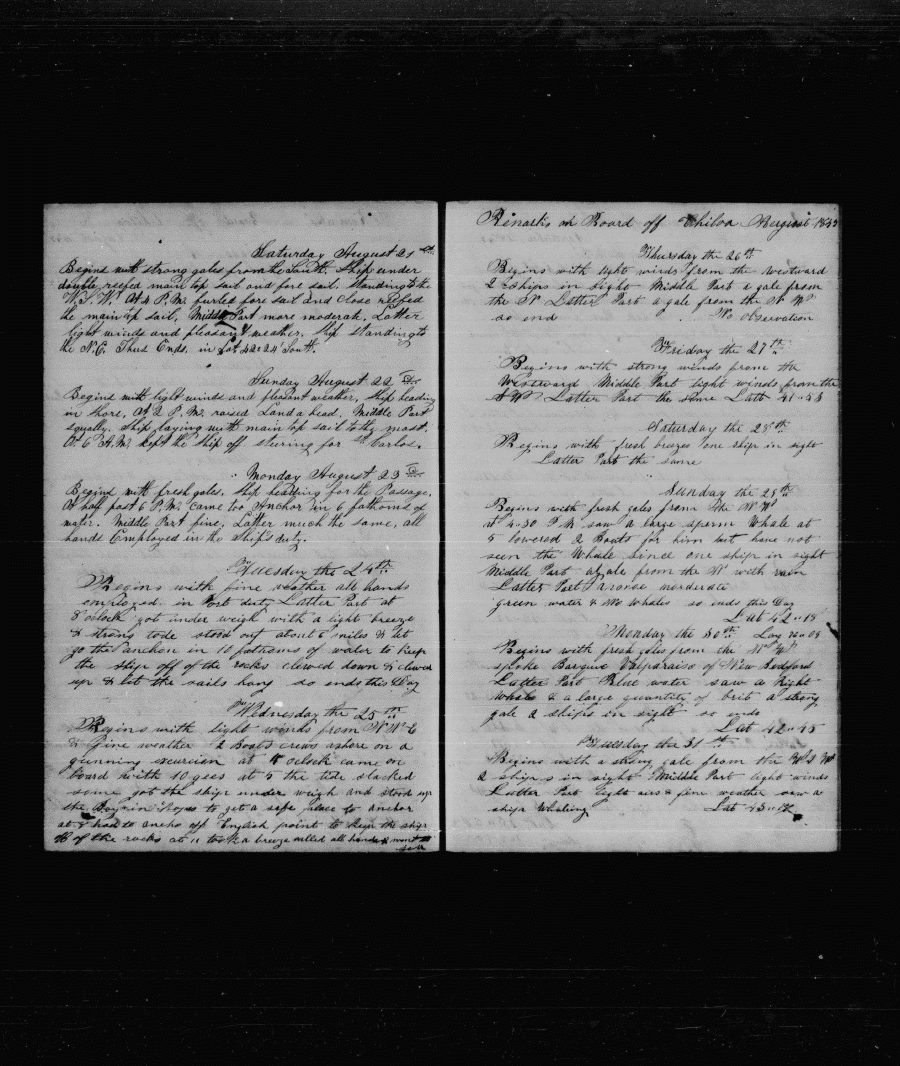 Saturday August 21st
Begins with strong gales from the South. Ship under
double reefed main top sail and fore sail. Standing to the
W.S.W. At 4 P.M. furled fore sail and close reefed
the main top sail. Middle Part more moderate, Latter
light winds and pleasant weather, Ship standing to
the N.E. Thus Ends. in Lat 42=24' South.
Sunday August 22
Begins with light winds and pleasant weather, Ship heading
in shore, At 2 P.M. raised Land a head. Middle Part
squally. Ship laying with main top sail to the mast.
At 6 A.M. kept the ship off stering for St Carlos.
Monday August 23
Begins with fresh gales. Ship heading for the Passage,
At half past 6 P.M. came too Anchor in 6 fathoms of
water. Middle Part fine, Latter much the same, all
hands Employed in the Ship's duty.
On Tuesday the 24th
Begins with fine weather all hands
employed in Port duty Latter Part at
8 oclock got under weigh with a light breeze
& strong tide stood out about 6 miles & let
go the anchor in 10 fathoms of water to keep
the ship off of the rocks clewed down & clewed
up & let the sails hang so ends this Day
On Wednesday the 25th
Begins with light winds from N N E
& fine weather 2 Boats crews ashore on a
gunning excursion at 4 oclock came on
board with 10 gees at 5 the tide slacked
some got the ship under weigh and stood up
the Bay in hopes to get a safe place to anchor
at 8 had to ancho off English point to keep the ship
off of the rocks at 11 took a breeze called all hands & went
Remarks on Board off Chiloa August 1843
Thursday the 26th
Begins with light winds from the westward
2 ships in sight Middle Part a gale from
the N Latter Part a gale from the N W
so end No observation
On Friday the 27th
Begins with strong winds from the
Westward Middle Part light winds from the
S W Latter Part the same Latt 41-53
Saturday the 28th
Begins with fresh breezes one ship in sight
Latter Part the same
Sunday the 29th
Begins with fresh gales from the N W
At 4-30 P M saw a large sperm Whale at
5 lowered 2 Boats for him but have not
seen the Whale since one ship in sight
Middle Part a gale from the N with rain
Latter Part more moderate
green water & no Whales so ends this Day
Lat 42-18
Monday the 30th Long 76-09
Begins with fresh gales from the N W
spoke Barque Valparaiso of New Bedford
Latter Part Blue water saw a Right
Whale & a large quantity of brit a strong
gale 2 ships in sight so ends
Lat 42-45
On Tuesday the 31st
Begins with a strong gale from the
2 ships in sight Middle Part light winds
Latter Part light airs & fine weather saw a
ship Whaling Lat 43-12